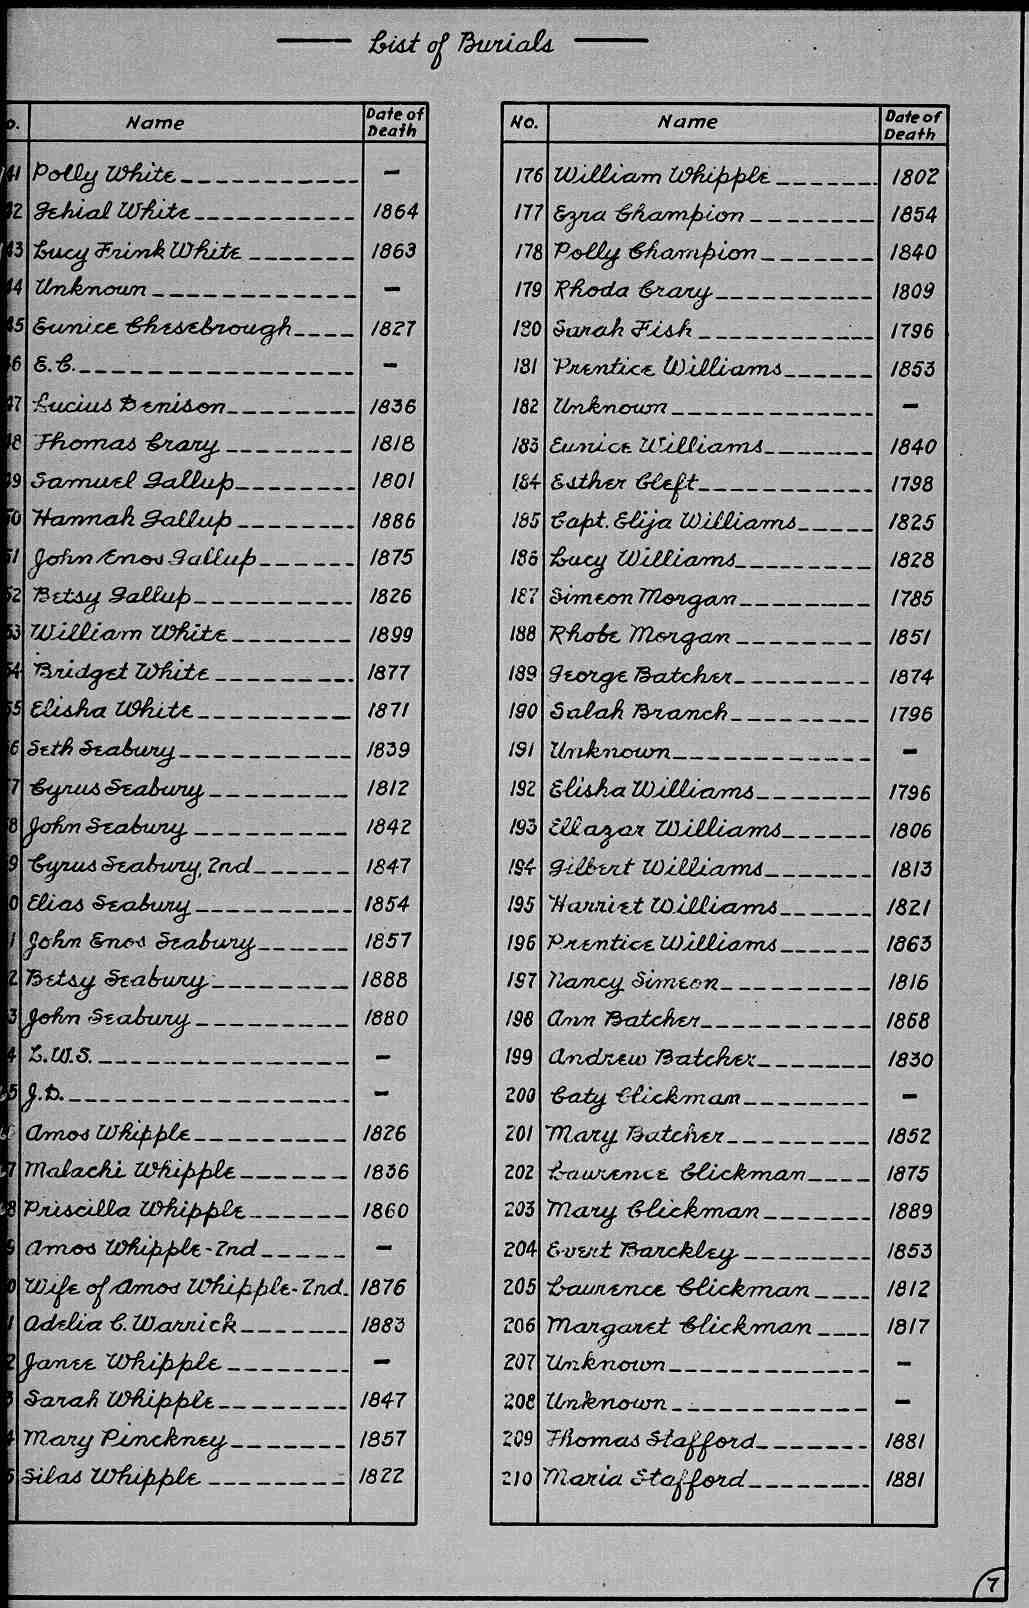 List of Burials
No. Name Date of Death
41 Polly White - 
42 Jehial White 1864
43 Lucy Frink White 1863
44 Unknown -
45 Eunice Chesebrough 1827
46 E.C. -
47 Lucius Denison 1836
48 Thomas Crary 1818
49 Samuel Gallup 1801
50 Hannah Gallup 1886
51 John Enos Gallup 1875
52 Betsy Gallup 1826
53 William White 1899
54 Bridget White 1877
55 Elisha White 1871
6 Seth Seabury 1839
7 Cyrus Seabury 1812
8 John Seabury 1842
9 Cyrus Seabury, 2nd 1847
0 Elias Seabury 1854
1 John Enos Seabury 1857
2 Betsy Seabury 1888
3 John Seabury 1880
4 L.W.S. -
65 J.D. -
66 Amos Whipple 1826
7 Malachi Whipple 1836
68 Priscilla Whipple 1860
9 Amos Whipple-2nd -
0 Wife of Amos Whipple-2nd. 1876
1 Adelia C. Warrick 1883
2 Janee Whipple -
3 Sarah Whipple 1847
4 Mary Pinckney 1857
5 Silas Whipple 1822
No. Name Date of Death
176 William Whipple 1802
177 Ezra Champion 1854
178 Polly Champion 1840
179 Rhoda Crary 1809
180 Sarah Fish 1796
181 Prentice Williams 1853
182 Unknown -
183 Eunice Williams 1840
184 Esther Cleft 1798
185 Capt. Elija Williams 1825
186 Lucy Williams 1828
187 Simeon Morgan 1785
188 Rhobe Morgan 1851
189 George Batcher 1874
190 Salah Branch 1796
191 Unknown -
192 Elisha Williams 1796
193 Ellazar Williams 1806
194 Gilbert Williams 1813
195 Harriet Williams 1821
196 Prentice Williams 1863
197 Nancy Simeon 1816
198 Ann Batcher 1868
199 Andrew Batcher 1830
200 Caty Clickman -
201 Mary Batcher 1852
202 Lawrence Clickman 1875
203 Mary Clickman 1889
204 Evert Barckley 1853
205 Lawrence Clickman 1812
206 Margaret Clickman 1817
207 Unknown -
208 Unknown -
209 Thomas Stafford 1881
210 Maria Stafford 1881
7